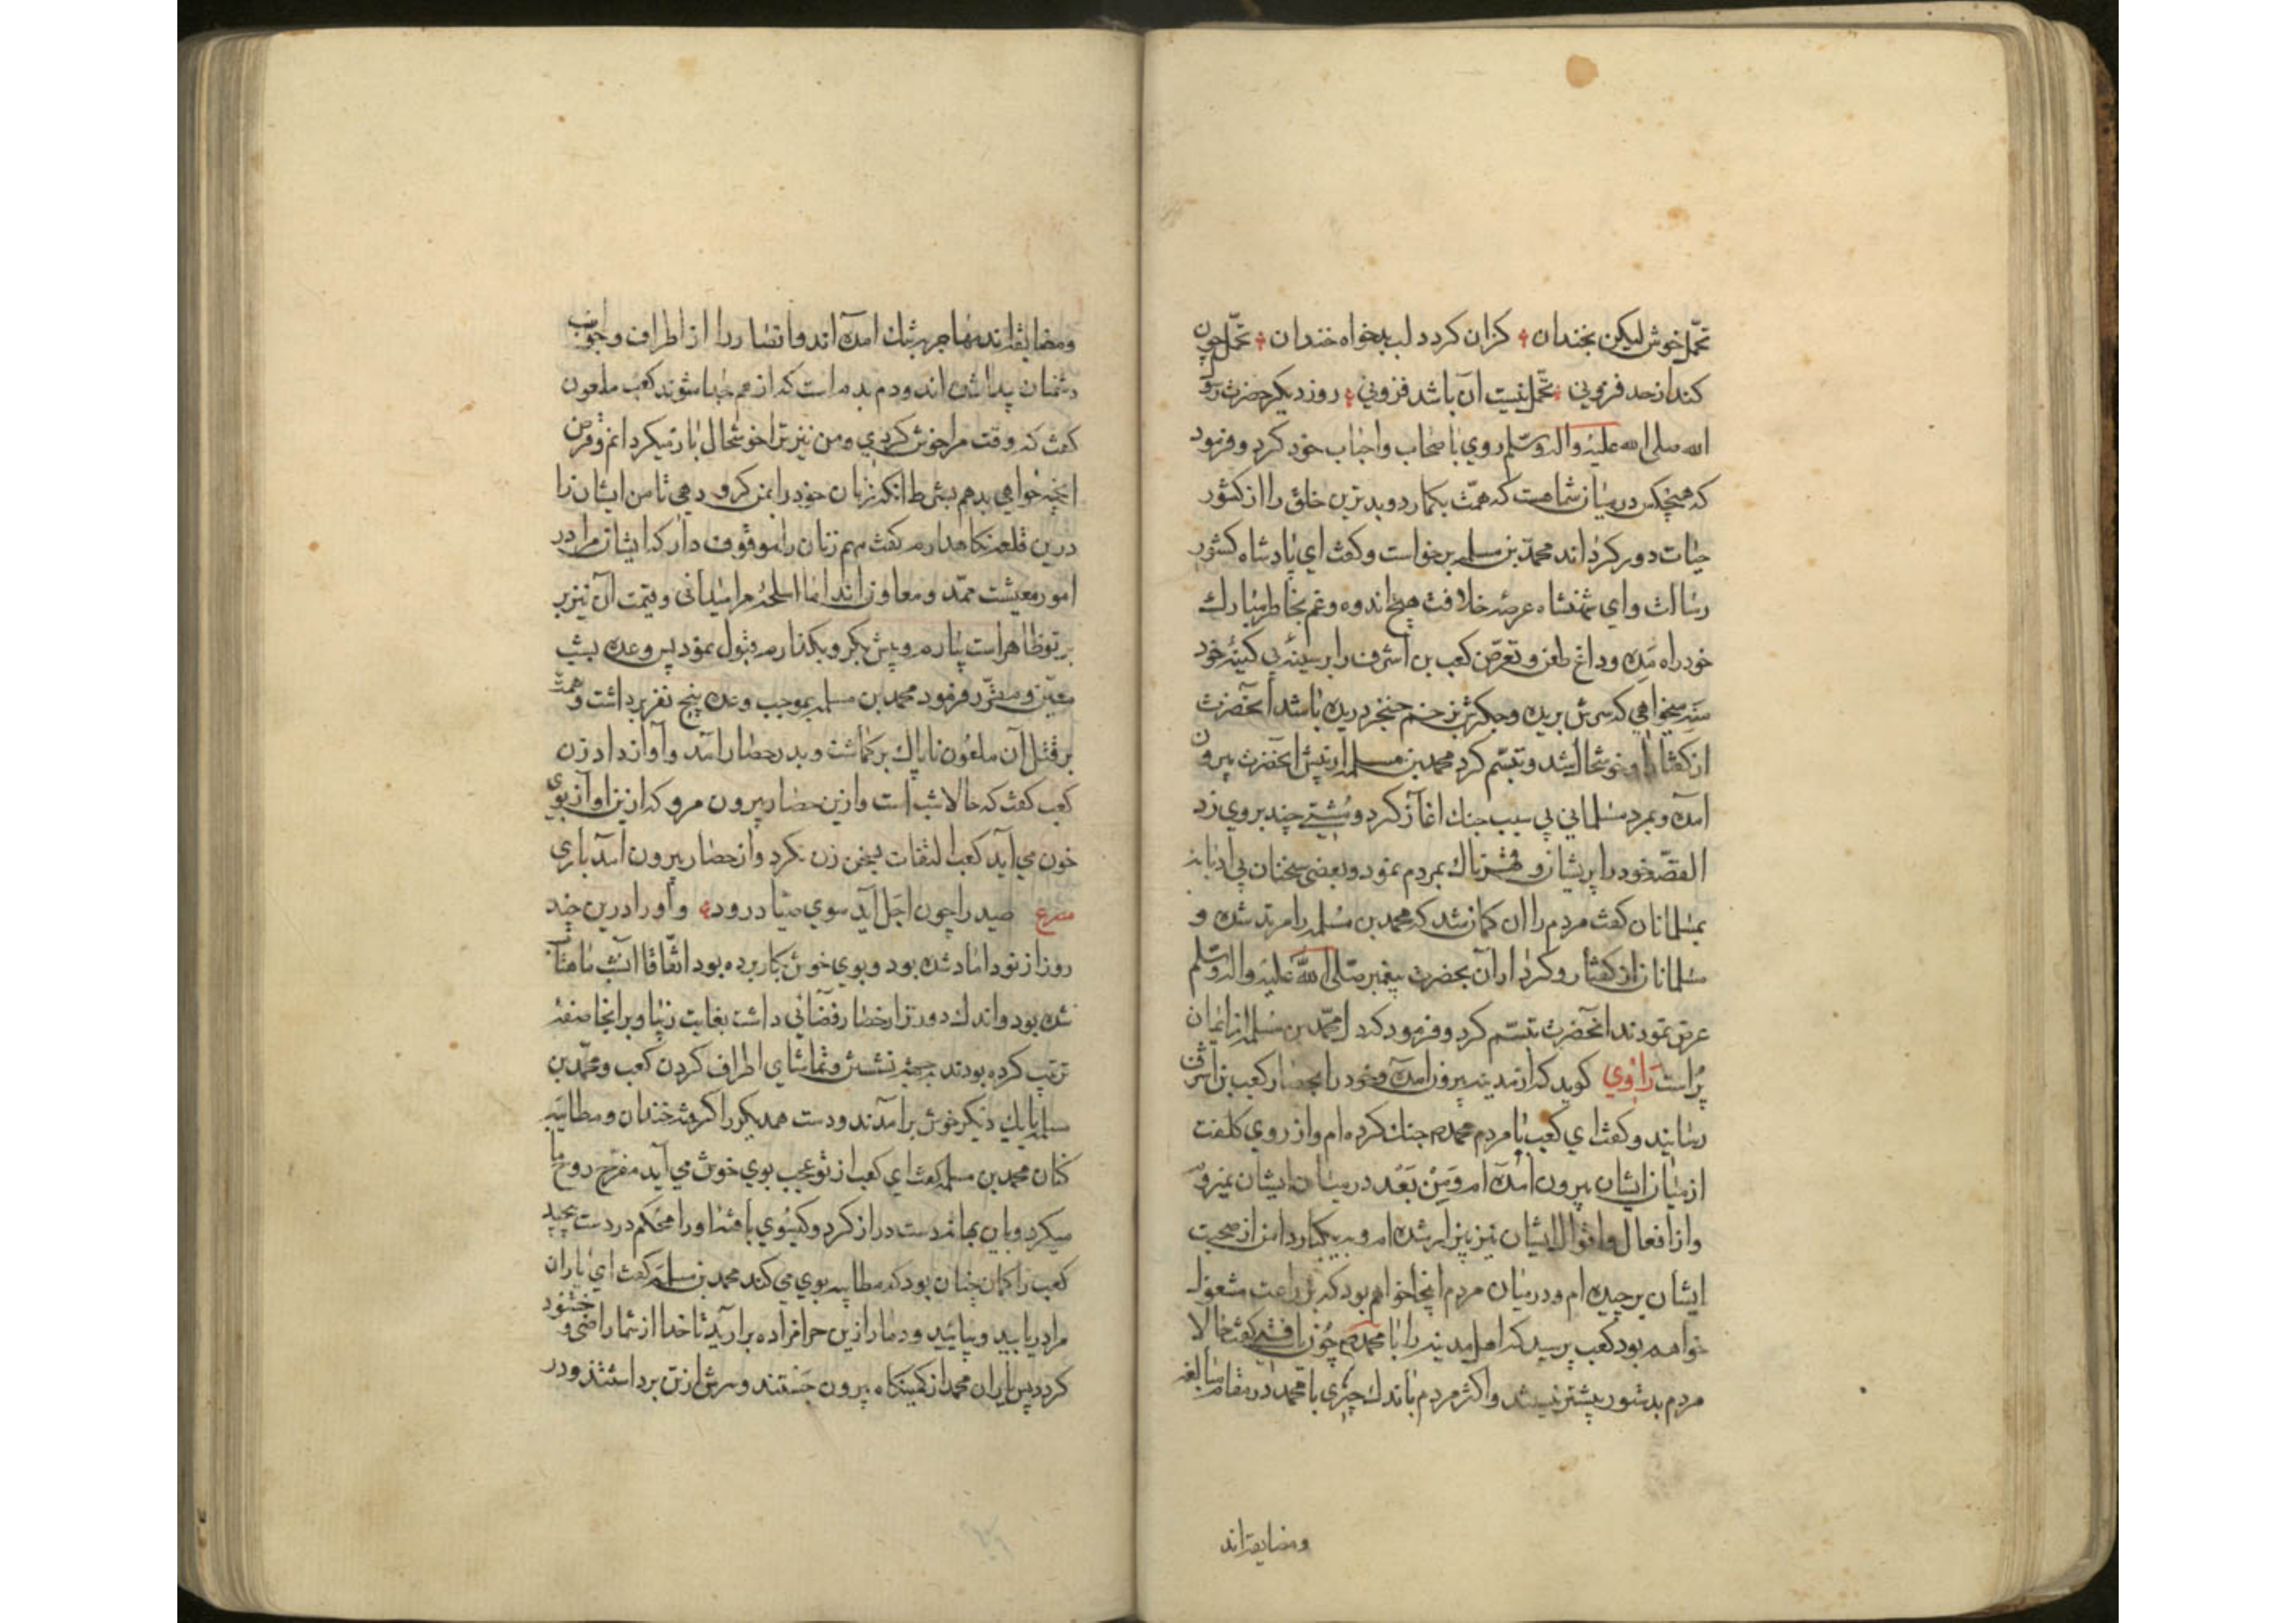 تحمّل خوش لیکن بخندان ؞ کزان کردد لب بدخواه خندان ؞ تحمّل چون
کند از حد فزونی ؞ تحمّل نیست آن باشد فزونی ؞ روز دیکر حضرت رسول
الله صلی الله علیه واله وسلم روی باصحاب واحباب خود کرد و فرمود
که هیچکس در میان شما هست که همّت بکمارد و بدترین خلق را از کشور
حیات دور کرداند محمّد بن مسلمه برخواست و کفت ای پادشاه کشور
رسالت و ای شهنشاه عرصهٔ خلافت هیچ اندوه و غم بخاطر مبارک
خود راه مده و داغ طعن و تعرّض کعب بن اشرف را بر سینهٔ بی کینهٔ خود
منه میخواهی که سرش بریده و جکرش بزخم خنجر دریده باشد آنحضرت
از کفتار او خوشحال شد و تبسّم کرد محمد بن مسلمه از پیش آنحضرت بیرون
آمده و بمرد مسلمانی بی سبب جنک اغاز کرد و مشتی چند بر وی زد
القصّه خود را پریشان و قهرناک بمردم نمود و بعضی سخنان بی ادبانه
بمسلمانان کفت مردم را ان کمان شد که محمد بن مسلمه را مرتد شده و
مسلمانان از کفتار و کردار آن بحضرت پیغمبر صلی الله علیه واله وسلم
عرض نمودند آنحضرت تبسّم کرد و فرمود که دل محمّد بن مسلمه از ایمان
پر است راوی کوید که از مدینه بیرون آمده و خود را بحصار کعب بن اشرف
رسانید و کفت ای کعب با مردم محمد جنک کرده ام و از روی کلفت
از میان ایشان بیرون آمده ام و من بعد در میان ایشان نمیروم
و از افعال و اقوال ایشان نیز بیزار شده ام و بیکبار دامن از صحبت
ایشان برچیده ام و در میان مردم اینجا خواهم بود که بزراعت مشغول
خواهم بود کعب پرسید که اهل مدینه را با محمد چون یافتی کفت حالا
مردم بدستور پیشتر نیستند و اکثر مردم باندک چیزی با محمد در مقام مبالغه
ومضایقه اند
ومضایقه اند مهاجر به تنک آمده اند و انصار را از اطراف و جوانب
دشمنان پیدا شده اند و دم بدم است که از هم جدا شوند کعب ملعون
کفت که وقت مرا خوش کردی و من نیز ترا خوشحال باز میکردانم و قرض
آنچه خواهی بدهم بشرط آنکه زنان خود را بمن کرو دهی تا من ایشان را
درین قلعه نکاهدارم کفت مهم زنان را موقوف دار که ایشان مرا در
امور معیشت ممد و معاون اند اما اسلحهٔ مرا میدانی و قیمت آن نیز بر
بر تو ظاهر است بیارم و پیش کرو بکذارم قبول نمود پس وعده بشب
معیّن و مقرّر فرمود محمد بن مسلمه بموجب وعده پنج نفر برداشت و همّت
بر قتل آن ملعون ناپاک برکماشت و بدر حصار آمد و آواز داد زن
کعب کفت که حالا شب است و ازین حصار بیرون مرو که ازین آواز بوی
خون می آید کعب التفات بسخن زن نکرد و از حصار بیرون آمد باری
مصرع صید را چون اجل آید سوی صیاد رود ؞ و او را درین چند
روز از نو داماد شده بود و بوی خوش بکار برده بود اتّفاقا آنشب ماهتاب
شده بود و اندک دورتر از حصار فضائی داشت بغایت زیبا و بر آنجا صفهٔ
ترتیب کرده بودند بجهة نشستن و تماشای اطراف کردن کعب و محمّد بن
مسلمه با یک دیکر خوش برآمدند و دست همدیکر را کرفته خندان و مطایبه
کنان محمد بن مسلمه کفت ای کعب از تو عجب بوی خوش می آید مفرّح روح ما
میکردد باین بهانه دست دراز کرد و کیسوی بافتهٔ او را محکم در دست پیچید
کعب را کمان چنان بود که مطایبه بوی می کند محمد بن مسلمه کفت ای یاران
مرا دریابید و بیایید و دمار ازین حرامزاده برآرید تا خدا از شما راضی و خشنود
کردد پس یاران محمد از کمینکاه بیرون جستند و سرش از تن برداشتند و در